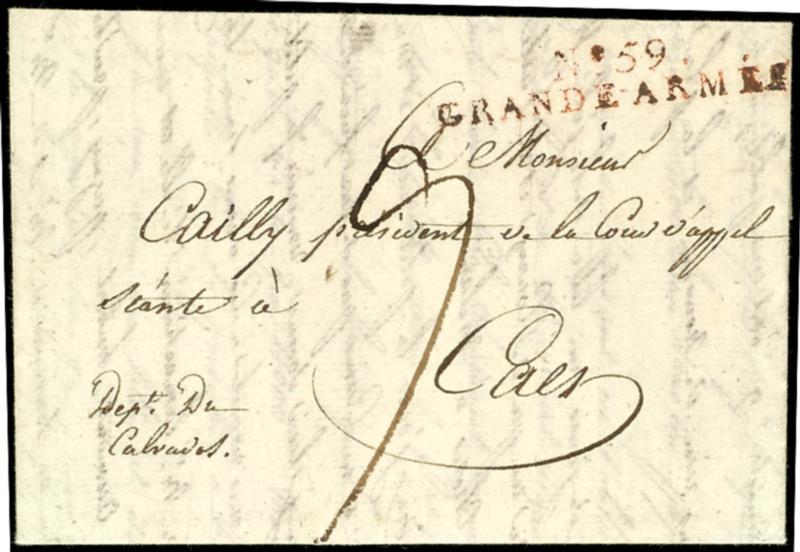 No 59.
GRANDE-ARMÉE
A Monsieur
Cailly président de la Cour d'appel
séante à
Caen
Dept. Du
Calvados.